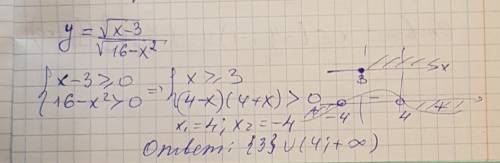 y = √(x-3) / √(16-x²)
{ x-3 ≥ 0 => { x ≥ 3
{ 16-x² > 0 { (4-x)(4+x) > 0
x₁ = 4; x₂ = -4
3 x
-4 - 4
Ответ: {3} ∪ (4; +∞)